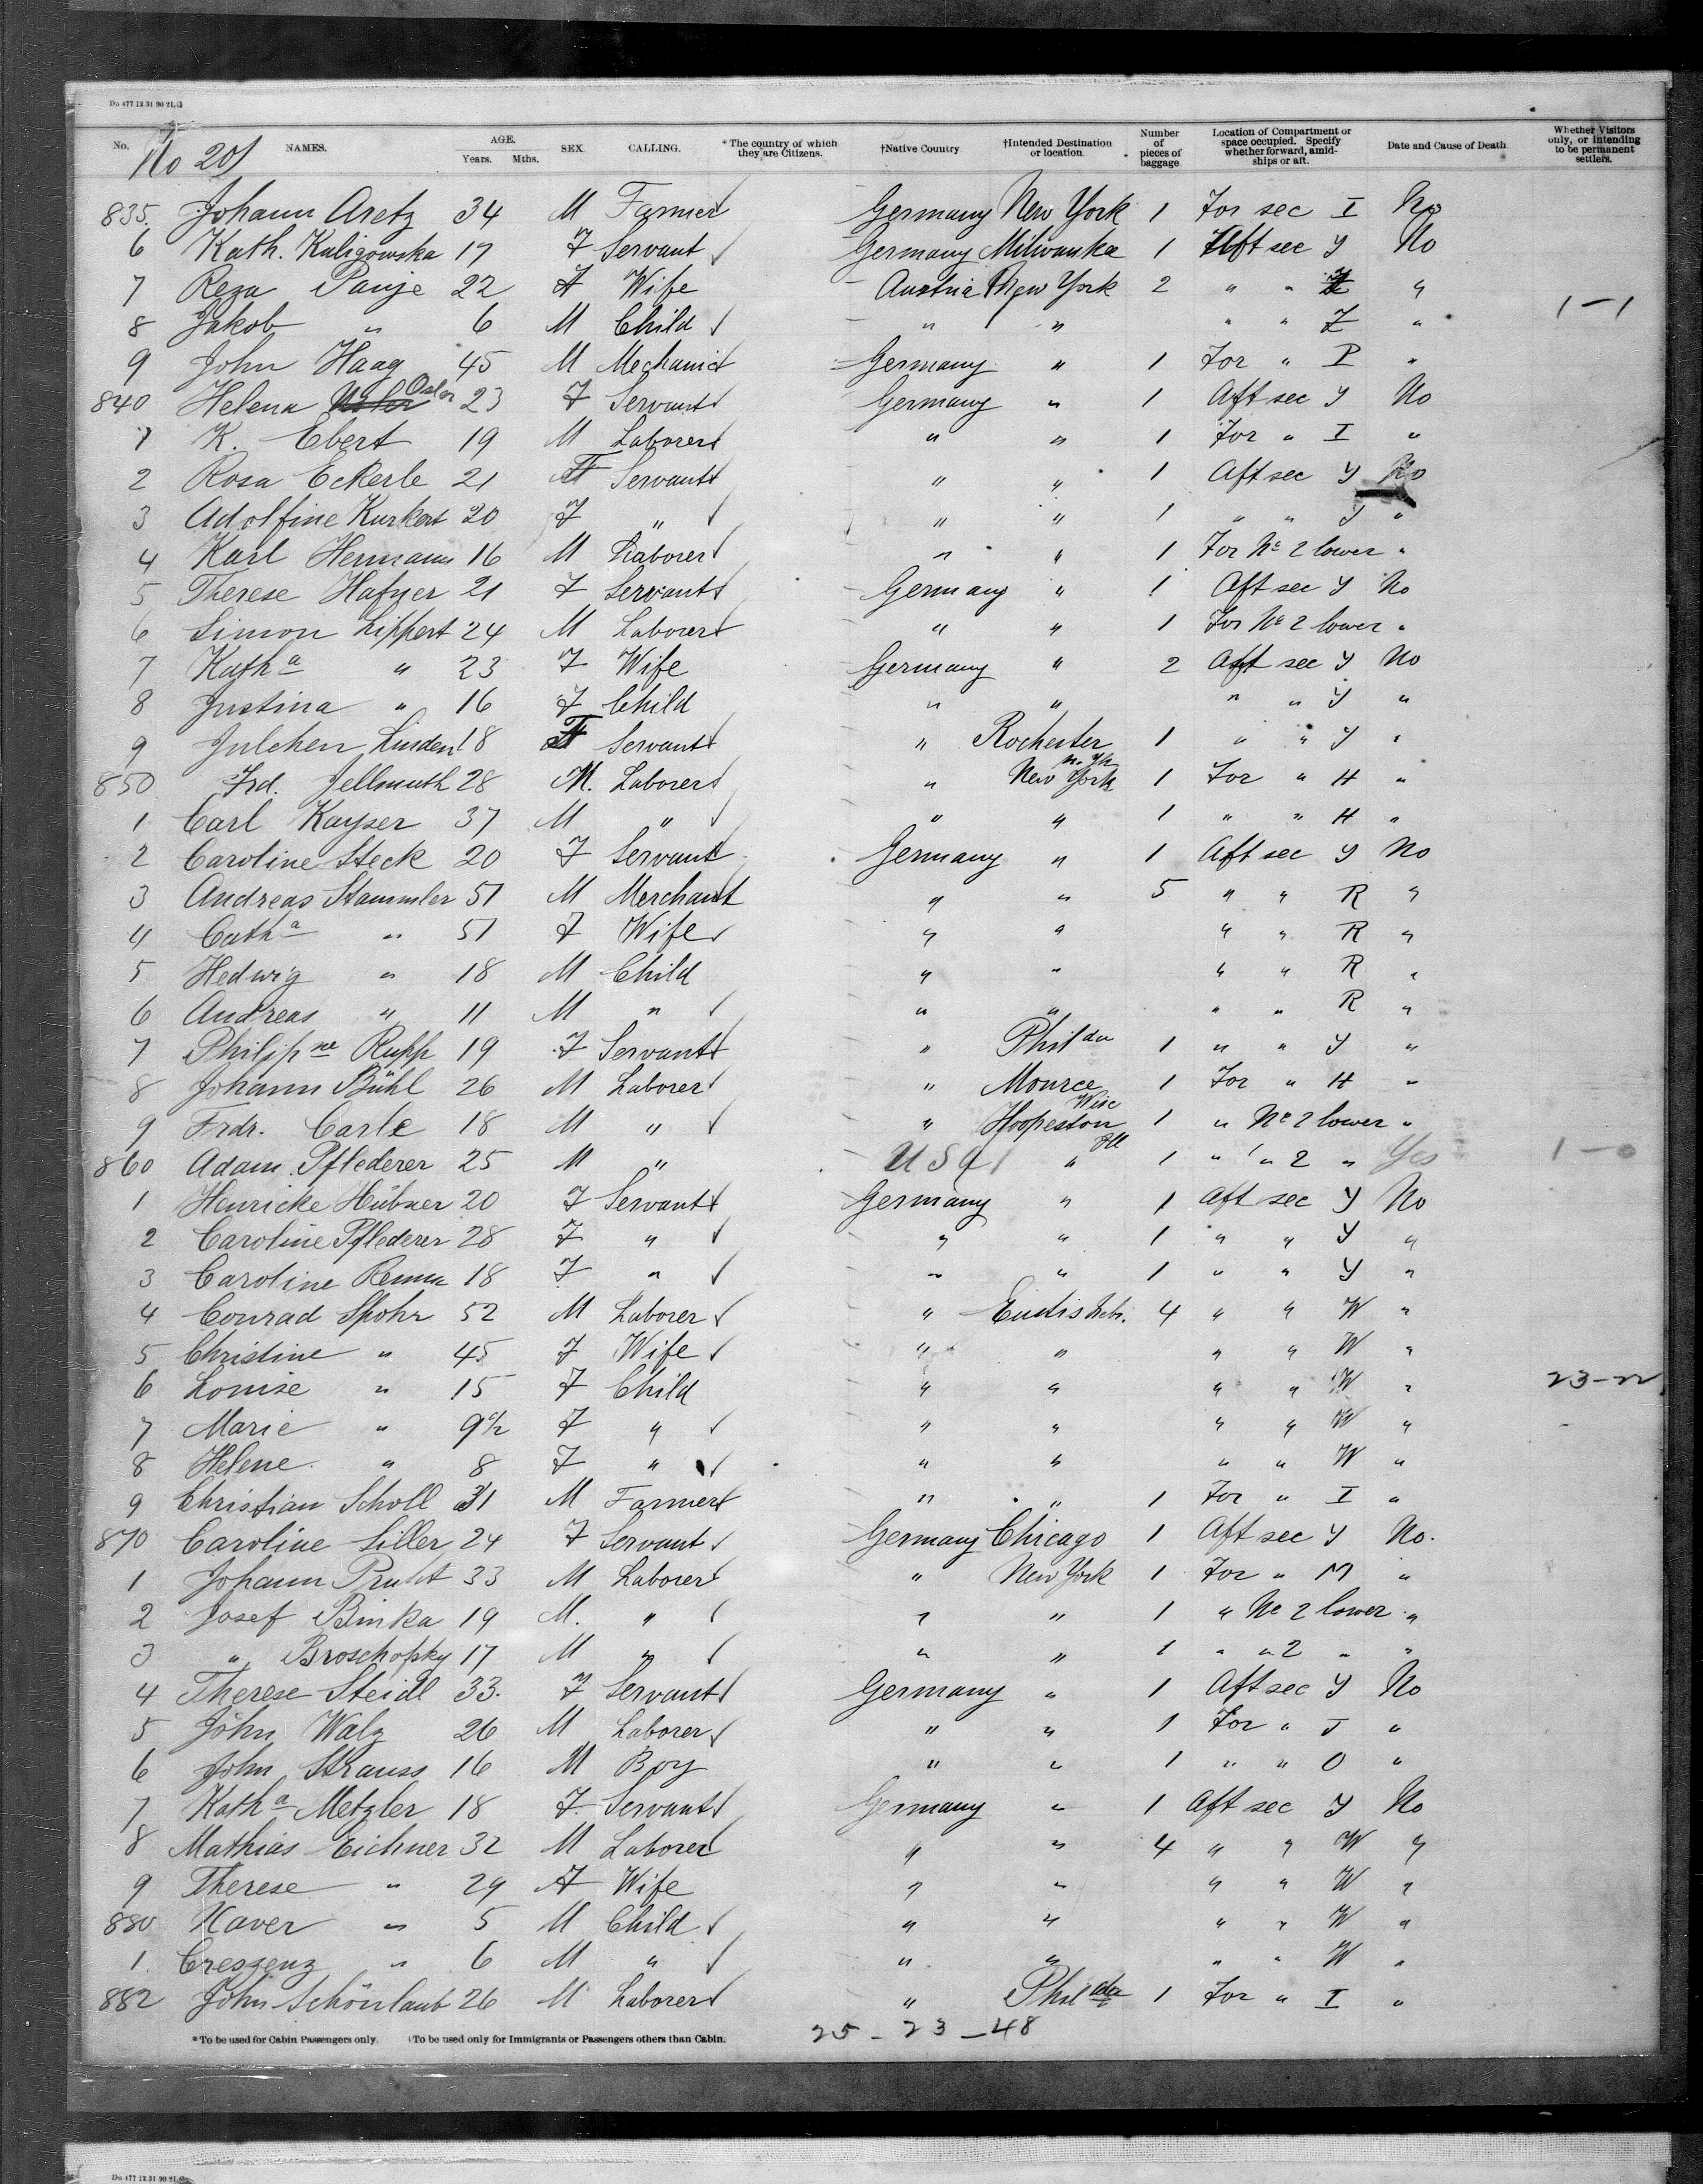 Do 477 12 31 90 2L
No 20
No. NAMES. AGE. Years. Mths. SEX. CALLING. *The country of which they are Citizens. †Native Country †Intended Destination or location. Number of pieces of baggage Location of Compartment or space occupied. Specify whether forward, amidships or aft. Date and Cause of Death Whether Visitors only, or intending to be permanent settlers.
835 Johann Aretz 34 M Farmer Germany New York 1 For sec I No
6 Kath. Kuligowska 17 F Servant Germany Milwauka 1 Aft sec Y No
7 Reza Panje 22 F Wife Austria New York 2 " " Z "
8 Jakob " 6 M Child " " " " Z " 1-1
9 John Haag 45 M Mechanic Germany " 1 For " P "
840 Helena Osler 23 F Servant Germany " 1 Aft sec Y No
1 K. Ebert 19 M Laborer " " 1 For " I "
2 Rosa Eckerle 21 F Servant " " 1 Aft sec Y No
3 Adolfine Kurkert 20 F " " " 1 " " Y "
4 Karl Hermann 16 M Laborer " " 1 For No 2 lower "
5 Therese Hafner 21 F Servant Germany " 1 Aft sec Y No
6 Simon Lippert 24 M Laborer " " 1 For No 2 lower "
7 Katha " 23 F Wife Germany " 2 Aft sec Y No
8 Justina " 16 F Child " " " " Y "
9 Julchen Linden 18 F Servant " Rochester N. Yk 1 " " Y "
850 Frd. Jellmuth 28 M. Laborer " New York 1 For " H "
1 Carl Kayser 37 M " " " 1 " " H "
2 Caroline Steck 20 F Servant Germany " 1 Aft sec Y No
3 Andreas Stammler 51 M Merchant " " 5 " " R "
4 Catha " 51 F Wife " " " " R "
5 Hedwig " 18 M Child " " " " R "
6 Andreas " 11 M " " " " " R "
7 Philipne Rupp 19 F Servant " Philda 1 " " Y "
8 Johann Bühl 26 M Laborer " Monroe Wisc 1 For " H "
9 Frdr. Carle 18 M " " Hoopeston Ill 1 " No 2 lower "
860 Adam Pflederer 25 M " USA " 1 " " 2 " Yes 1-0
1 Henricke Hübner 20 F Servant Germany " 1 Aft sec Y No
2 Caroline Pflederer 28 F " " " 1 " " Y "
3 Caroline Remm 18 F " " " 1 " " Y "
4 Conrad Spohr 52 M Laborer " Eustis Nebr. 4 " " W "
5 Christine " 45 F Wife " " " " W "
6 Louise " 15 F Child " " " " W " 23-22
7 Marie " 9½ F " " " " " W "
8 Helene " 8 F " " " " " W "
9 Christian Scholl 31 M Farmer " " 1 For " I "
870 Caroline Siller 24 F Servant Germany Chicago 1 Aft sec Y No.
1 Johann 33 M Laborer " New York 1 For " M "
2 Josef Binka 19 M. " " " 1 " No 2 lower "
3 " Broschofsky 17 M " " " 1 " " 2 " "
4 Therese Steidl 33. F Servant Germany " 1 Aft sec Y No
5 John Walz 26 M Laborer " " 1 For " J "
6 John Strauss 16 M Boy " " 1 " " O "
7 Katha Metzler 18 F. Servant Germany " 1 Aft sec Y No
8 Mathias Eichner 32 M Laborer " " 4 " " W "
9 Therese " 29 F Wife " " " " W "
880 Xaver " 5 M Child " " " " W "
1. Creszenz " 6 M " " " " " W "
882 John Schönlaub 26 M Laborer " Philda 1 For " I "
*To be used for Cabin Passengers only. †To be used only for Immigrants or Passengers others than Cabin. 25-23-48
Do 477 12.31 90 2L